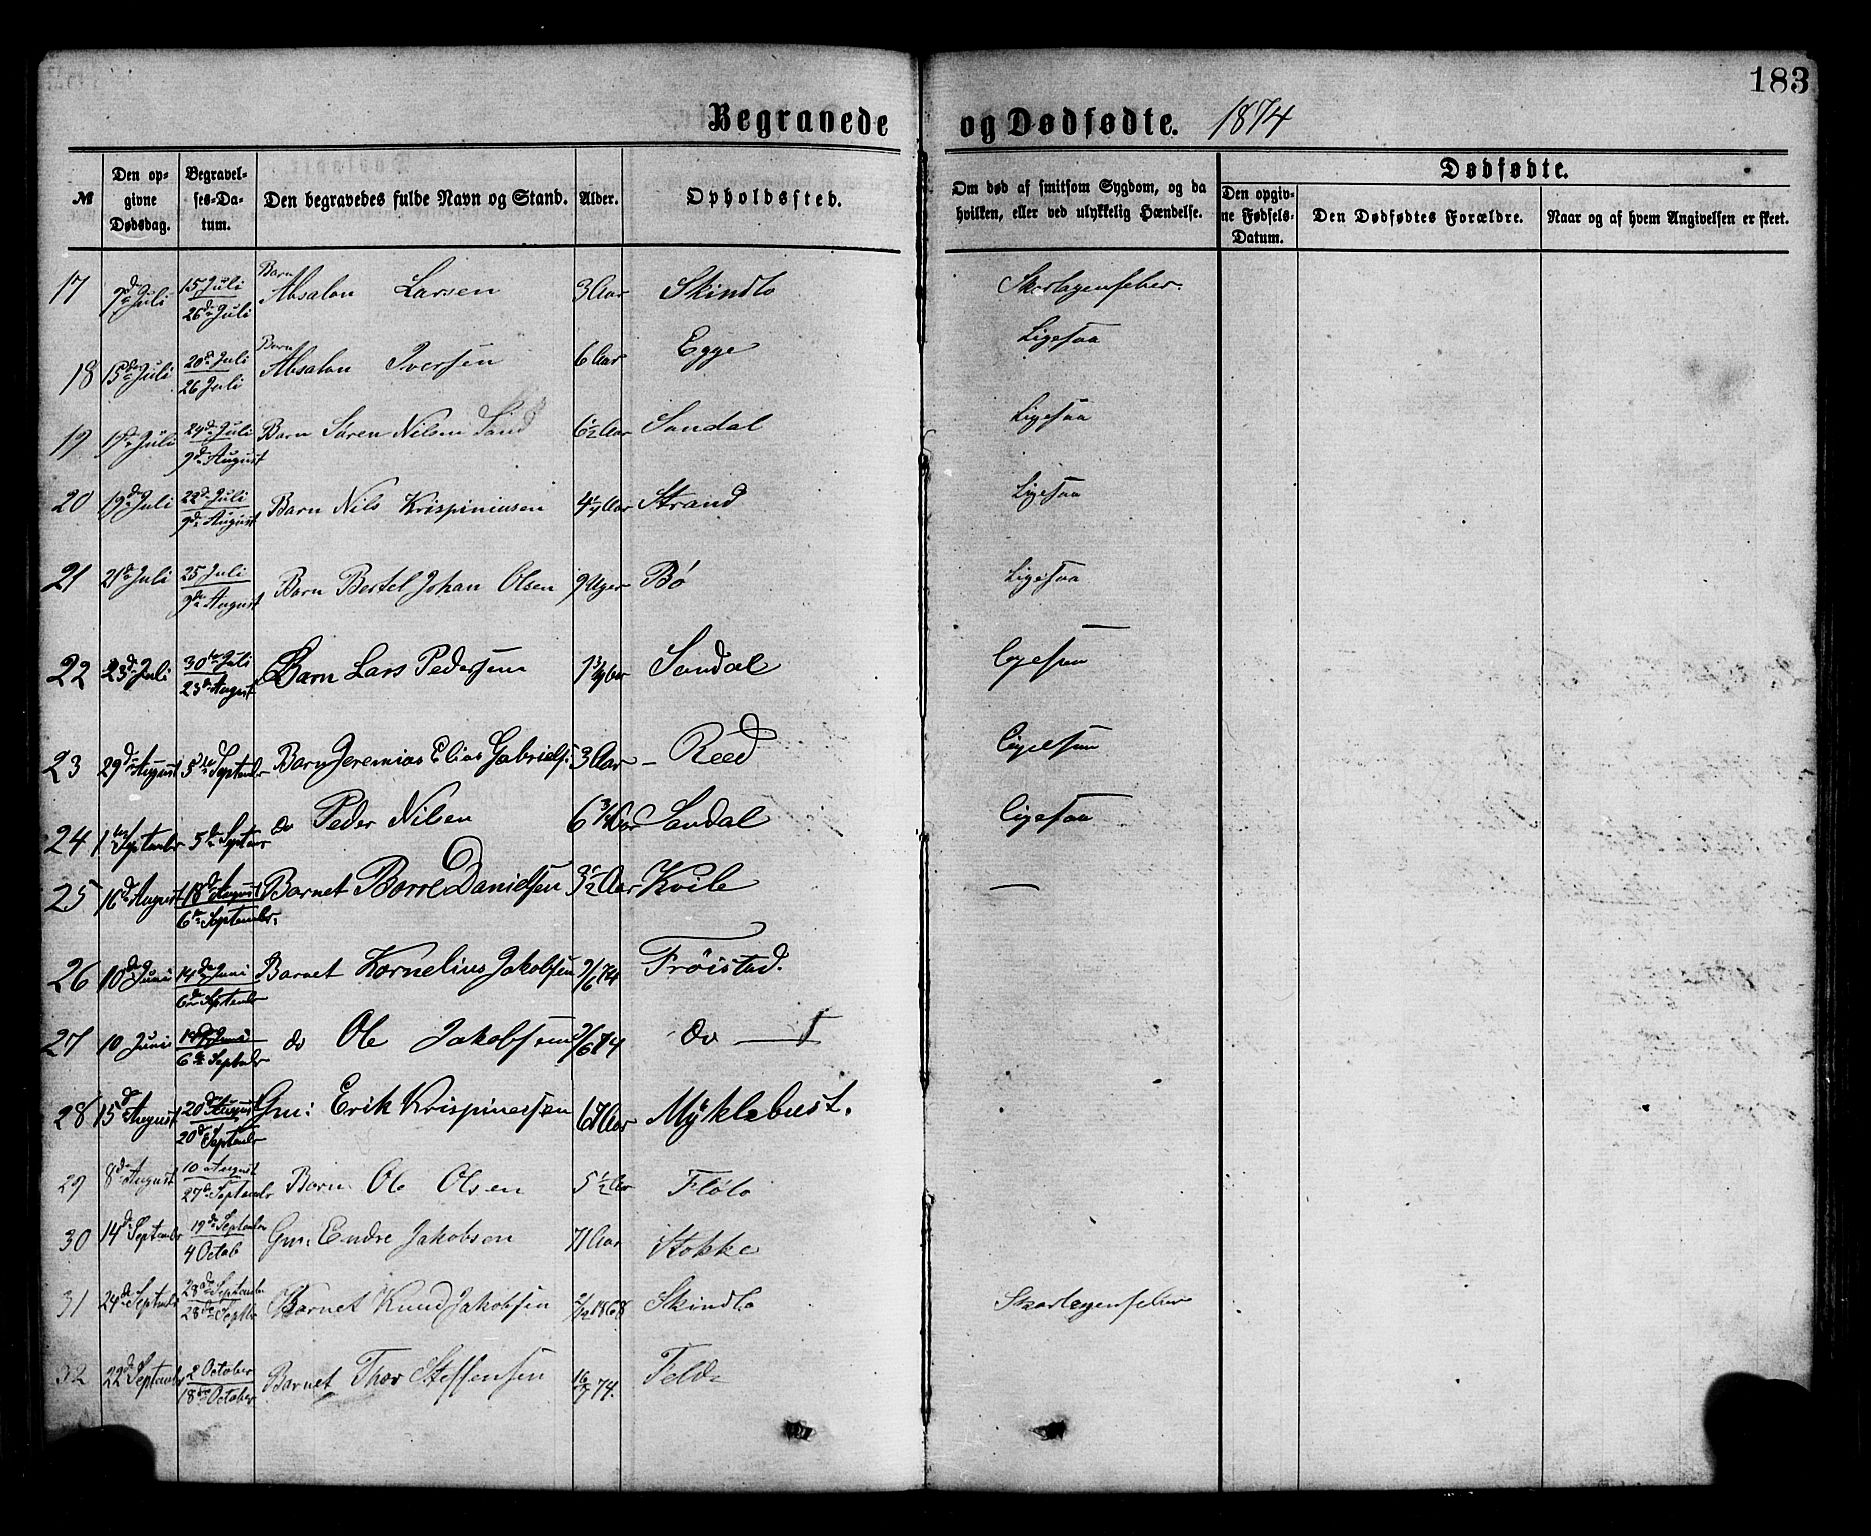 183
Begravede og Dødfødte. 1874
№ | Den opgivne Dødsdag. | Begravelses-Datum. | Den begravedes fulde Navn og Stand. | Alder. | Opholdssted. | Om død af smitsom Sygdom, og da hvilken, eller ved ulykkelig Hændelse. | Dødfødte. Den opgivne Fødsels-Datum. | Den Dødfødtes Forældre. | Naar og af hvem Angivelsen er skeet.
17 | 9de Juli | 15 Juli / 26de Juli | Barn Absalon Larsen | 3 Aar | Skindlo | Skarlagensfeber.
18 | 15de Juli | 20de Juli / 26 Juli | Barn Absalon Iversen | 6 Aar | Egge | Ligesaa
19 | 19de Juli | 24de Juli / 9de August | Barn Søren Nilsen Sand | 6½ Aar | Sandal | Ligesaa
20 | 19de Juli | 22de Juli / 9de August | Barn Nils Krispiniusen | 4¼ Aar | Strand | Ligesaa
21 | 21de Juli | 25 Juli / 9de August | Barn Bertel Johan Olsen | 9 Uger | Bø | Ligesaa
22 | 23de Juli | 30te Juli / 23de August | Barn Lars Pedersen | 1¾ Aar | Sandal | Ligesaa
23 | 29de August | 5te September | Barn Jeremias Elias Gabriels: | 3 Aar | Reed | Ligesaa
24 | 1te September | 5te Septbr | do Peder Nilsen | 6¾ Aar | Sandal | Ligesaa
25 | 16de August | 18de August / 6te September. | Barnet Børre Danielsen | 3½ Aar | Kvile | —
26 | 10de Juni | 14de Juni / 6te September | Barnet Kornelius Jakobsen | 9/6 74 | Frøistad.
27 | 10 Juni | 14de Juni / 6te Septebr | do Ole Jakobsen | 9/6 74 | do —
28 | 15de August | 20de August / 20de September | Gm: Erik Krispinussen | 67 Aar | Myklebust.
29 | 8de August | 10 August / 27de September | Barn Ole Olsen | 5½ Aar | Flølo
30 | 14de September | 19de September / 4 Octob | Gm: Endre Jakobsen | 71 Aar | Stokke
31 | 24de Septembr | 28de September / 28de Septbr | Barnet Knud Jakobsen | /12 1868 | Skindlo | Skarlagensfeber
32 | 22de September | 2 October / 18de October | Barnet Thor Steffensen | 16/9 74. | Felde